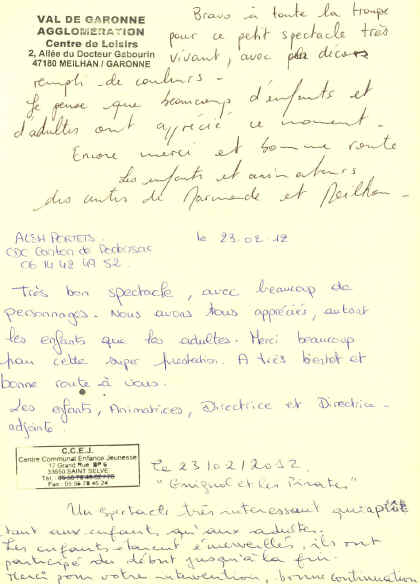 VAL DE GARONNE
AGGLOMERATION
Centre de Loisirs
2, Allée du Docteur Gabourin
47180 MEILHAN / GARONNE
Bravo à toute la troupe
pour ce petit spectacle très
vivant, avec décors
remplis de couleurs.
Je pense que beaucoup d'enfants et
d'adultes ont apprécié ce moment.
Encore merci et bonne route
Les enfants et animateurs
des centres de Marmande et Meilhan.
le 23.02.12
CDC Canton de
06 14 42 49 52.
Très bon spectacle, avec beaucoup de
personnages. Nous avons tous appréciés, autant
les enfants que les adultes. Merci beaucoup
pour cette super prestation. A très bientôt et
bonne route à vous.
Les enfants, Animatrices, Directrice et Directrice
adjointe.
C.C.E.J.
Centre Communal Enfance Jeunesse
17 Grand Rue BP 6
33650 SAINT SELVE
Tél.
Fax : 05 56 78 45 24
Le 23/02/2012
"Guignol et Les Pirates"
Un spectacle très intéressant qui a plût
tant aux enfants qu'aux adultes.
Les enfants étaient émerveillés, ils ont
participé du début jusqu'à la fin.
Merci pour votre intervention, bonne continuation